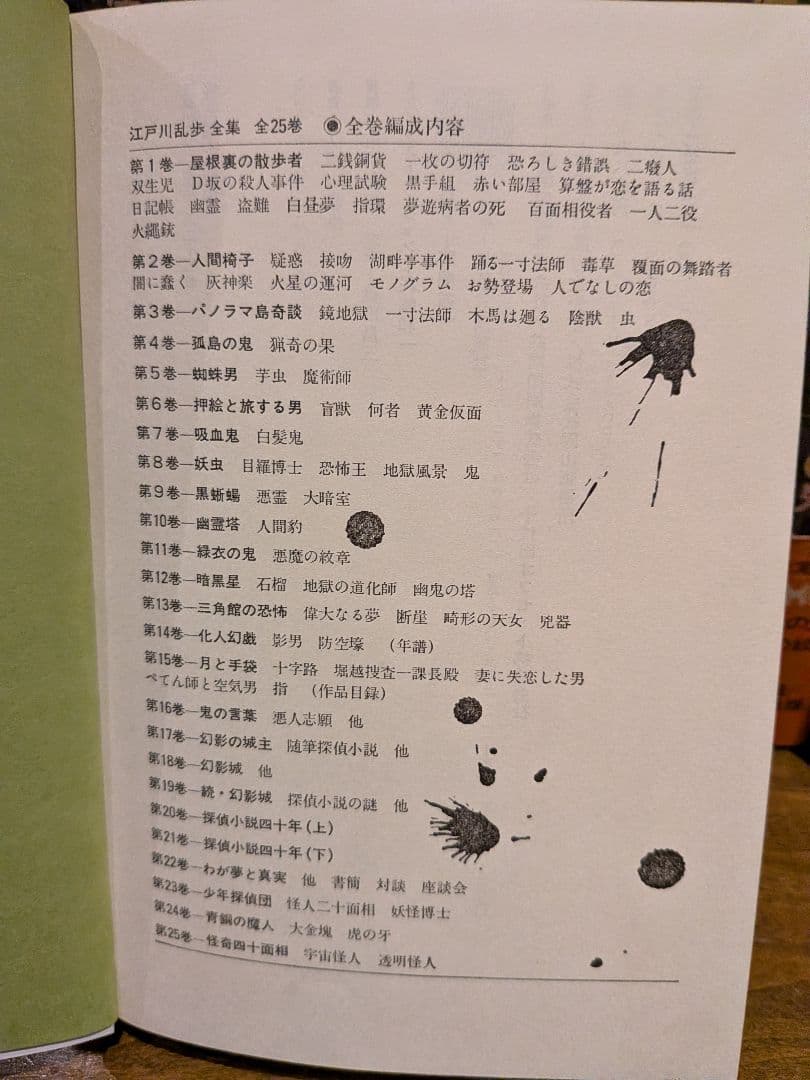 江戸川乱歩 全集 全25巻 ◉全巻編成内容
第1巻―屋根裏の散歩者 二銭銅貨 一枚の切符 恐ろしき錯誤 二癈人
双生児 D坂の殺人事件 心理試験 黒手組 赤い部屋 算盤が恋を語る話
日記帳 幽霊 盗難 白昼夢 指環 夢遊病者の死 百面相役者 一人二役
火縄銃
第2巻―人間椅子 疑惑 接吻 湖畔亭事件 踊る一寸法師 毒草 覆面の舞踏者
闇に蠢く 灰神楽 火星の運河 モノグラム お勢登場 人でなしの恋
第3巻―パノラマ島奇談 鏡地獄 一寸法師 木馬は廻る 陰獣 虫
第4巻―孤島の鬼 猟奇の果
第5巻―蜘蛛男 芋虫 魔術師
第6巻―押絵と旅する男 盲獣 何者 黄金仮面
第7巻―吸血鬼 白髪鬼
第8巻―妖虫 目羅博士 恐怖王 地獄風景 鬼
第9巻―黒蜥蜴 悪霊 大暗室
第10巻―幽霊塔 人間豹
第11巻―緑衣の鬼 悪魔の紋章
第12巻―暗黒星 石榴 地獄の道化師 幽鬼の塔
第13巻―三角館の恐怖 偉大なる夢 断崖 畸形の天女 兇器
第14巻―化人幻戯 影男 防空壕 (年譜)
第15巻―月と手袋 十字路 堀越捜査一課長殿 妻に失恋した男
ぺてん師と空気男 指 (作品目録)
第16巻―鬼の言葉 悪人志願 他
第17巻―幻影の城主 随筆探偵小説 他
第18巻―幻影城 他
第19巻―続・幻影城 探偵小説の謎 他
第20巻―探偵小説四十年(上)
第21巻―探偵小説四十年(下)
第22巻―わが夢と真実 他 書簡 対談 座談会
第23巻―少年探偵団 怪人二十面相 妖怪博士
第24巻―青銅の魔人 大金塊 虎の牙
第25巻―怪奇四十面相 宇宙怪人 透明怪人